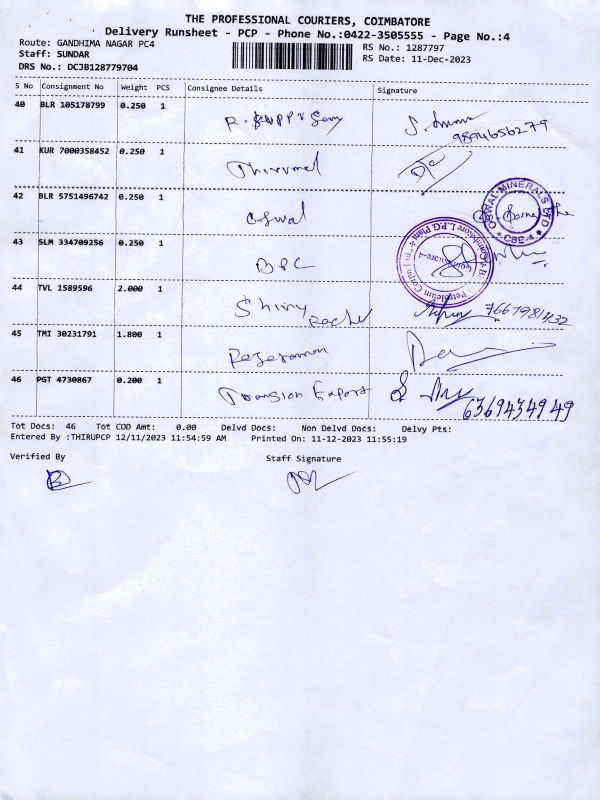 THE PROFESSIONAL COURIERS, COIMBATORE
Delivery Runsheet - PCP - Phone No.:0422-3505555 - Page No.:4
Route: GANDHIMA NAGAR PC4 RS No.: 1287797
Staff: SUNDAR RS Date: 11-Dec-2023
DRS No.: DCJB128779704
S No Consignment No Weight PCS Consignee Details Signature
40 BLR 105178799 0.250 1 R.
9894656279
41 KUR 7000358452 0.250 1 Thirumal
42 BLR 5751496742 0.250 1 Oswal
OSWAL MINERALS LTD
CBE-4
43 SLM 334709256 0.250 1 BPC
Coimbatore L.P.G Plant
Petroleum Corpn. Ltd.,
44 TVL 1589596 2.000 1 Shiny 7667981432
45 TMI 30231791 1.800 1
46 PGT 4730867 0.200 1 Export
6369434949
Tot Docs: 46 Tot COD Amt: 0.00 Delvd Docs: Non Delvd Docs: Delvy Pts:
Entered By :THIRUPCP 12/11/2023 11:54:59 AM Printed On: 11-12-2023 11:55:19
Verified By Staff Signature